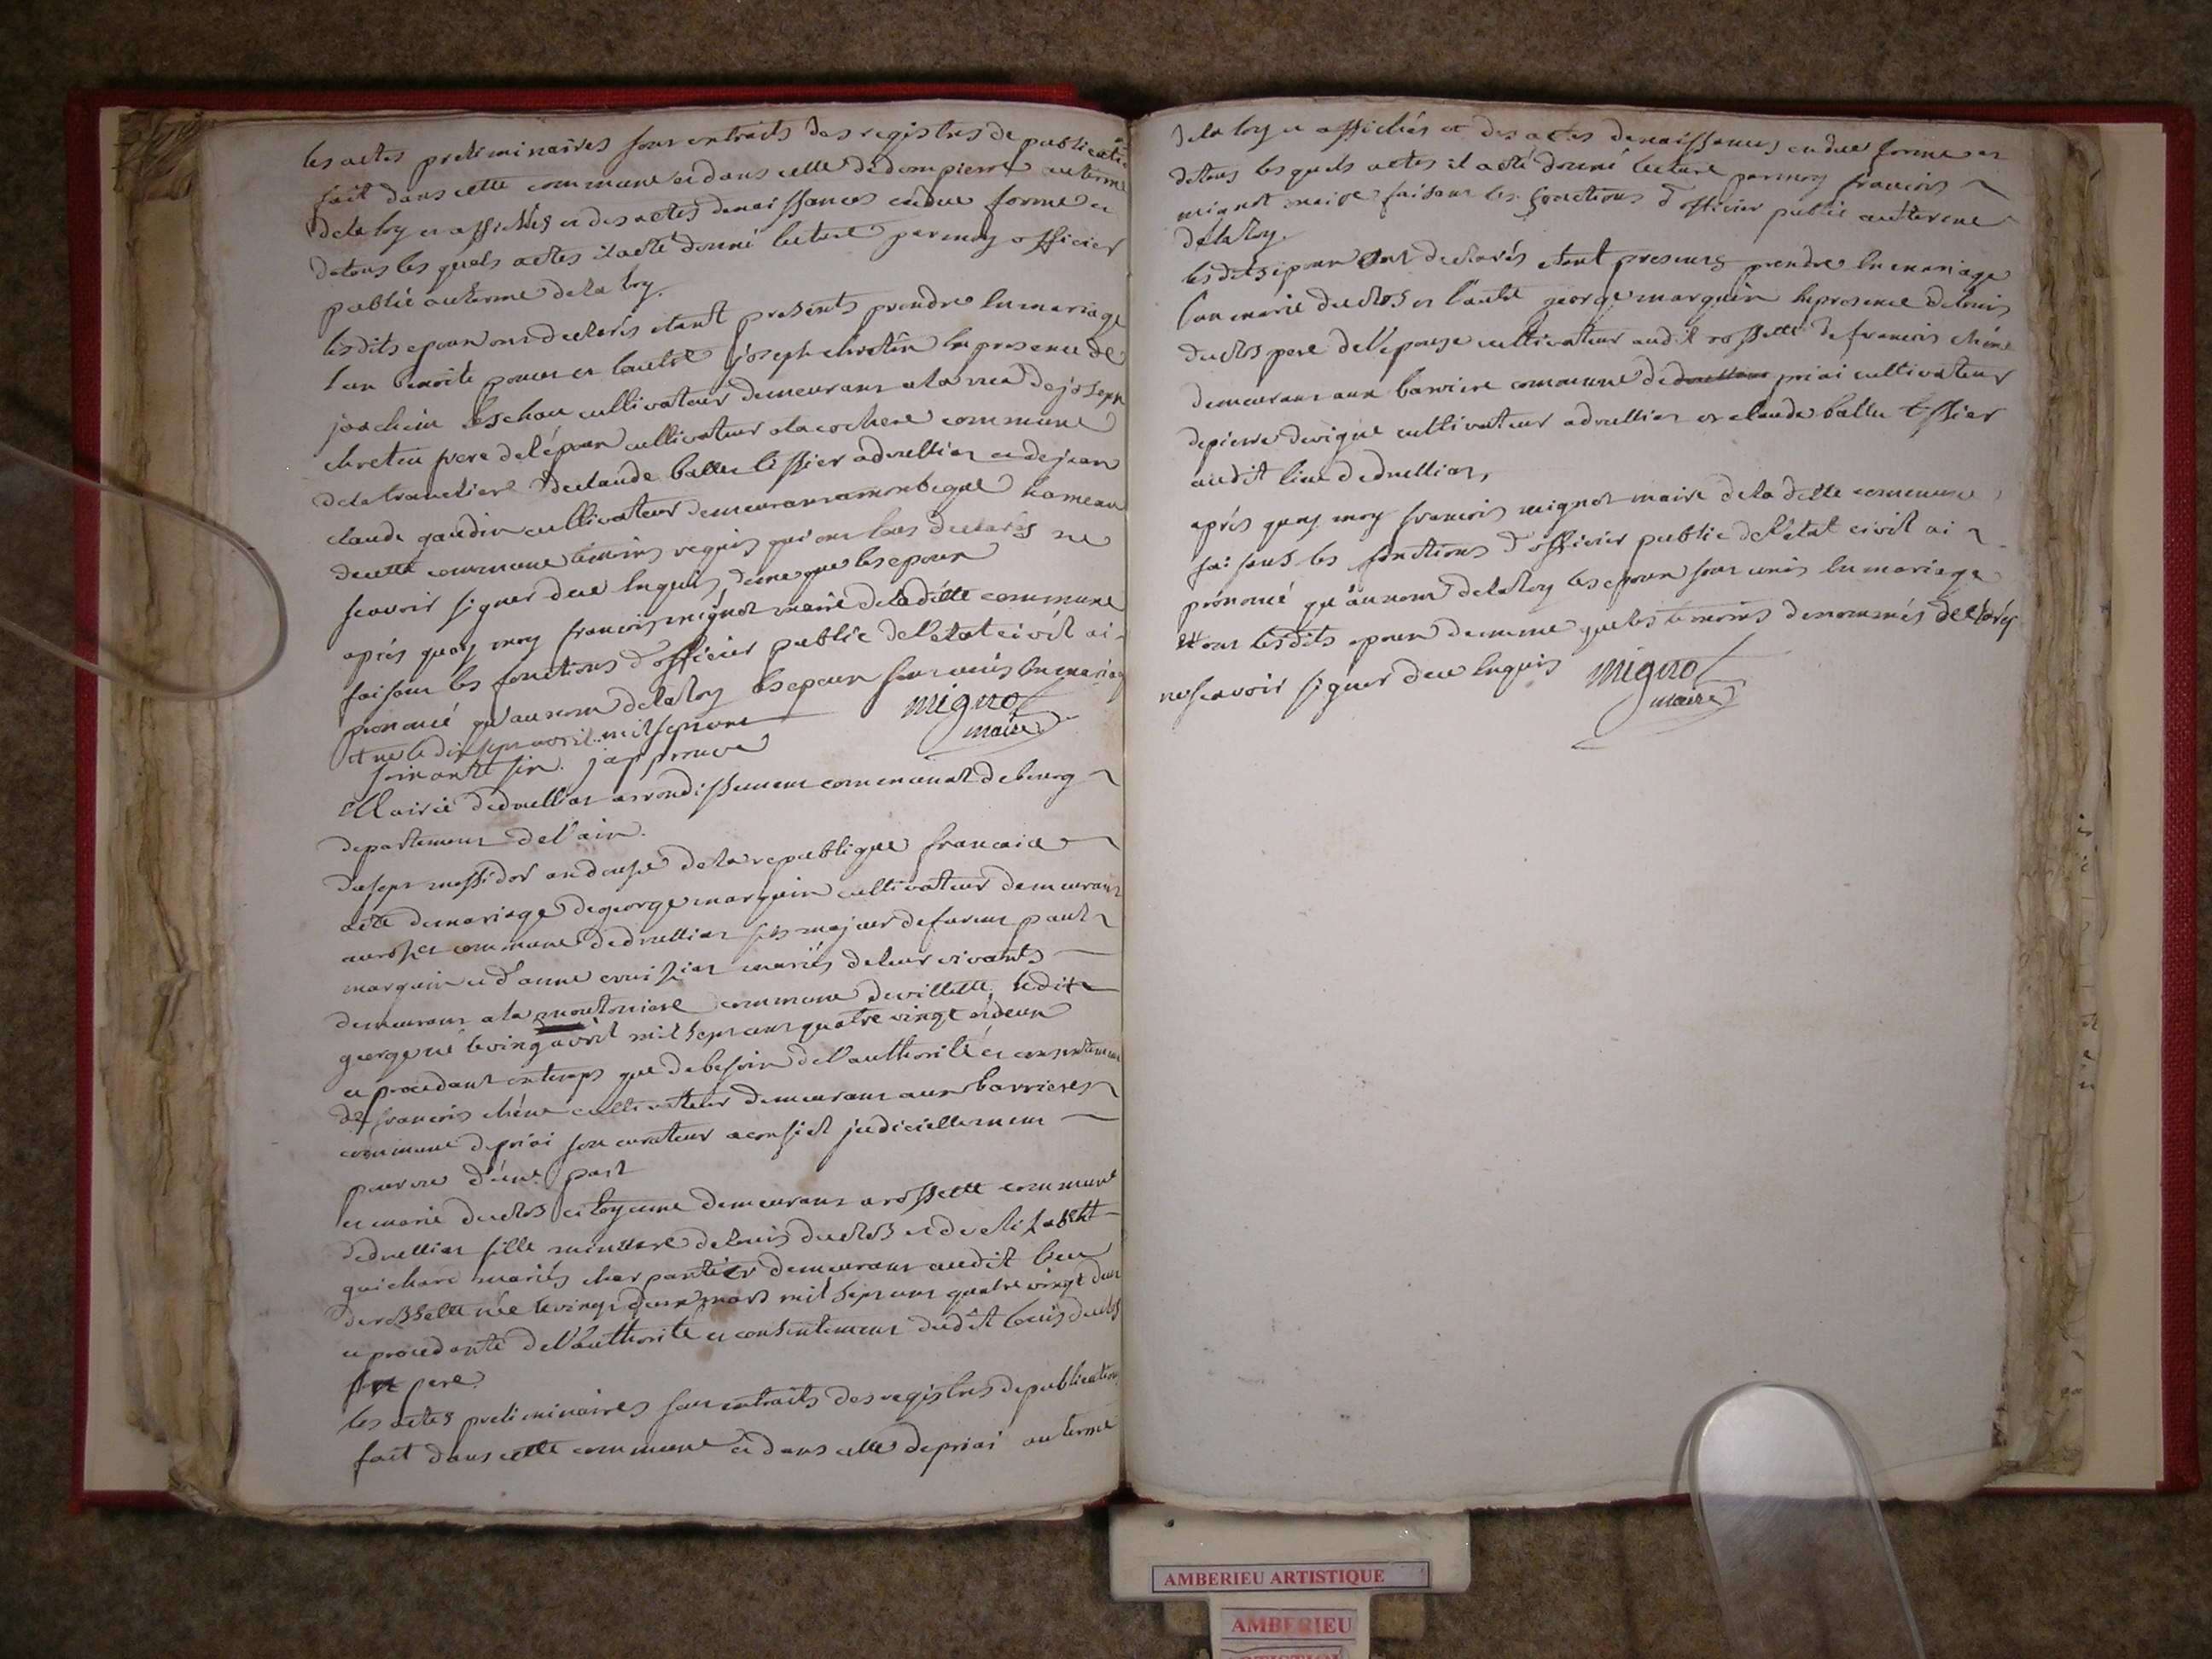 les actes preliminaires sont extraits des registres de publicatio
fait dans cette commune et dans celle de dompierre au terme
de la loy et affichés et des actes de naissances en due forme et
de tous les quels actes il a été donné lecture par moy officier
public au terme de la loy.
les dits epoux ont declarés etant presents prendre en mariage
l'un benoite et l'autre joseph chretien en presence de
joachim cultivateur demeurant a la de joseph
chreten frere de l'époux cultivateur a la cochere commune
de la tranchere de claude ballu tissier a druillat et de jean
claude gaudin cultivateur demeurant a hameau
de cette commune temoins requis qui ont tous declarés ne
scavoir signer de ce enquis de me que les epoux
aprés quoy moy francois mignot maire de la ditte commune
faisant les fonctions d'officier public de l'etat civil ai
prononcé qu'au nom de la loy les epoux sont unis en mariag
et ne le dix sept avril mil sept cent
soixante six. japprouve
mignot
maire
Mairie de druillat arrondissement communal de bourg
departement de l'ain.
du sept messidor an douze de la republique francaice
acte de mariage de george marguin cultivateur demeurant
au commune de druillat fils majeur de furent paul
marguin et d'anne mariés de leur vivants
demeurant a la moutoniere commune de villette, ledit
george né le vingt avril mil sept cent quatre vingt et deux
et procedant entemps que de besoin de l'authorité et consentement
de francois chéne cultivateur demeurant aux barrieres
commune de priai son curateur a conseil judiciellement
pourvu d'une part
et marie duclos citoyenne demeurant a rossette commune
de druillat fille mineure de louis duclos et de elisabeth
guichard mariés charpantier demeurant audit lieu
de rossette née le vingt deux mars mil sept cent quatre vingt deux
et procedante de l'authorité et consentement dudit louis duclos
son pere.
les actes preliminaires sont extraits des registres de publication
fait dans cette commune et dans celle de priai au terme
de la loy et affichés et des actes de naissances en due forme et
de tous les quels actes il a été donné lecture par moy francois
mignot maire faisant les fonctions d'officier public au terme
de la loy.
les dits epoux ont declarés etant presents prendre en mariage
l'un marie duclos et l'autre george marguin en presence de louis
duclos pere de l'epouse cultivateur audit rossette de francois chéne
demeurant aux barriere commune de priai cultivateur
de pierre devigne cultivateur a druillat et claude ballu tissier
audit lieu de druillat,
aprés quoy moy francois mignot maire de la ditte commune
faisant les fonctions d'officier public de l'etat civil ai
prononcé qu'au nom de la loy les epoux sont unis en mariage
et ont lesdits epoux de meme que les temoins denommés declarés
ne scavoir signer de ce enquis
mignot
maire
AMBERIEU ARTISTIQUE
AMBERIEU
ARTISTIQUE